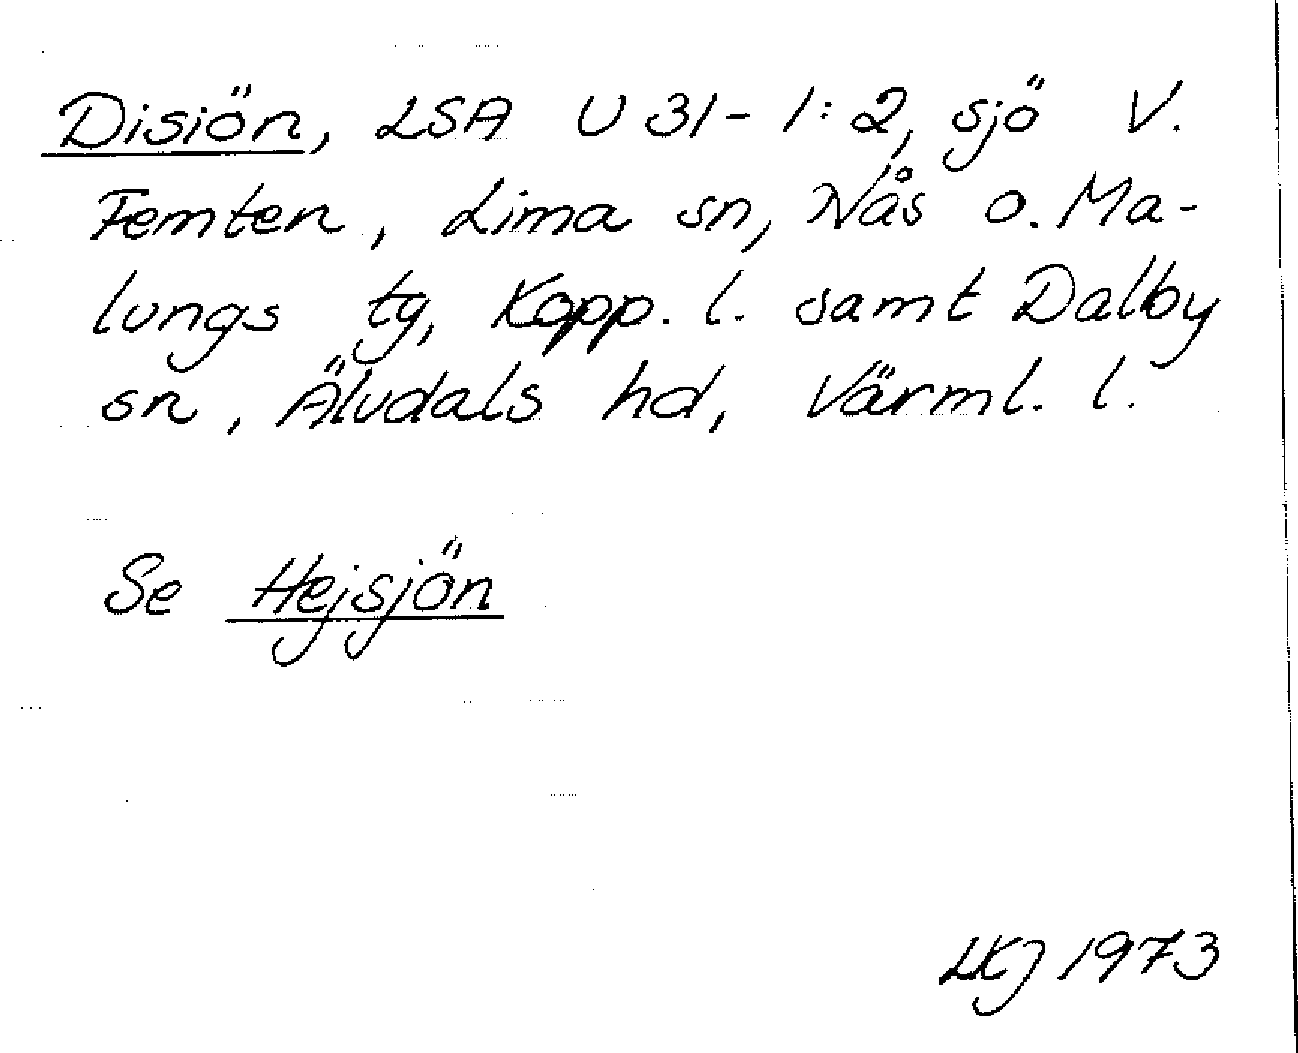 Disiön, LSA U 31-1:2, sjö V.
Femten, Lima sn, Nås o. Ma-
lungs tg, Kopp. l. samt Dalby
sn, Älvdals hd, Värml. l.
Se Hejsjön
LKJ 1973